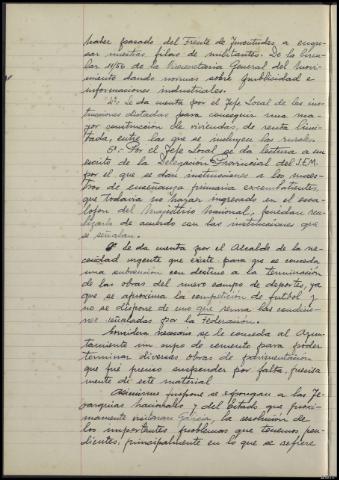 haber pasado del Frente de Juventudes a engro-
sar nuestras filas de militantes. De la Circu-
lar 11/56 de la Vicesecretaria General del Movi-
miento dando normas sobre publicidad e
informaciones industriales.
2º: Se da cuenta por el Jefe Local de las ins-
trucciones dictadas para conseguir una ma-
yor construcción de viviendas de renta limi-
tada, entre las que se incluyen las rurales.
3º: Por el Jefe Local se da lectura a un
escrito de la Delegación Provincial del S.E.M.
por el que se dan instrucciones a los maes-
tros de enseñanza primaria excombatientes,
que todavia no hayan ingresado en el esca-
lafon del Magisterio Nacional, puedan rea-
lizarlo de acuerdo con las instrucciones que
se señalan.
Se da cuenta por el Alcalde de la ne-
cesidad urgente que existe para que se conceda
una subvención con destino a la terminación
de las obras del nuevo campo de deportes, ya
que se aproxima la competición de futbol y
no se dispone de uno que reuna las condicio-
nes señaladas por la Federación.
Considera necesario se le conceda al Ayun-
tamiento un cupo de cemento para poder
terminar diversas obras de pavimentación
que fué preciso suspender por falta, precisa-
mente de este material.
Asimismo propone se expongan a las Je-
rarquias Nacionales y del Estado que proxi-
mamente visitaran la resolución de
los importantes problemas que tenemos pen-
dientes, principalmente en lo que se refiere